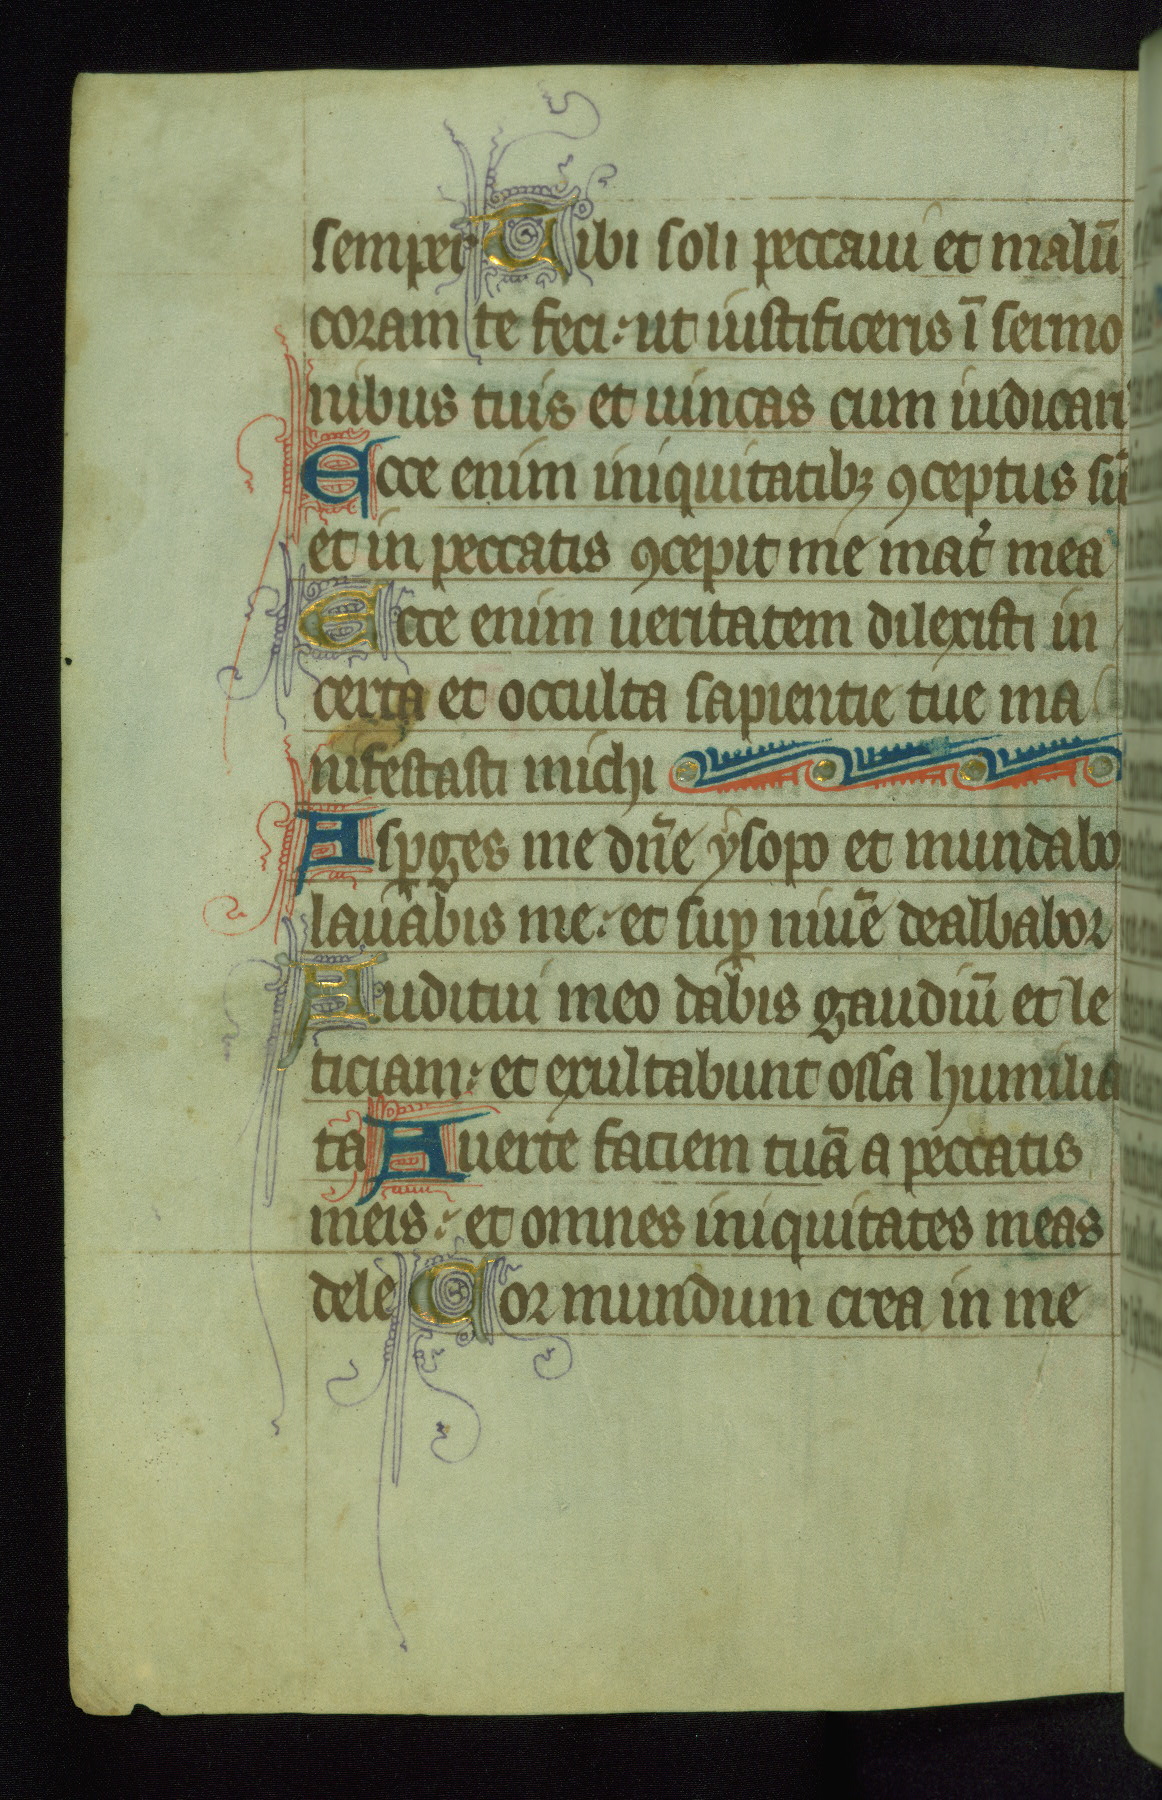 semper Tibi soli peccaui et malū
coram te feci: ut iustificeris ī sermo
nibus tuis et uincas cum iudicaris
Ecce enim iniquitatibꝫ ꝯceptus sū
et in peccatis ꝯcepit me mat̉ mea
Ecce enim ueritatem dilexisti in
certa et occulta sapientie tue ma
nifestasti michi
Asꝑges me dn̄e ysopo et mundabo
lauabis me: et suꝑ niuē dealbabor
Auditui meo dabis gaudiū et le
ticiam: et exultabunt ossa humilia
ta Auerte faciem tuā a peccatis
meis: et omnes iniquitates meas
dele Cor mundum crea in me